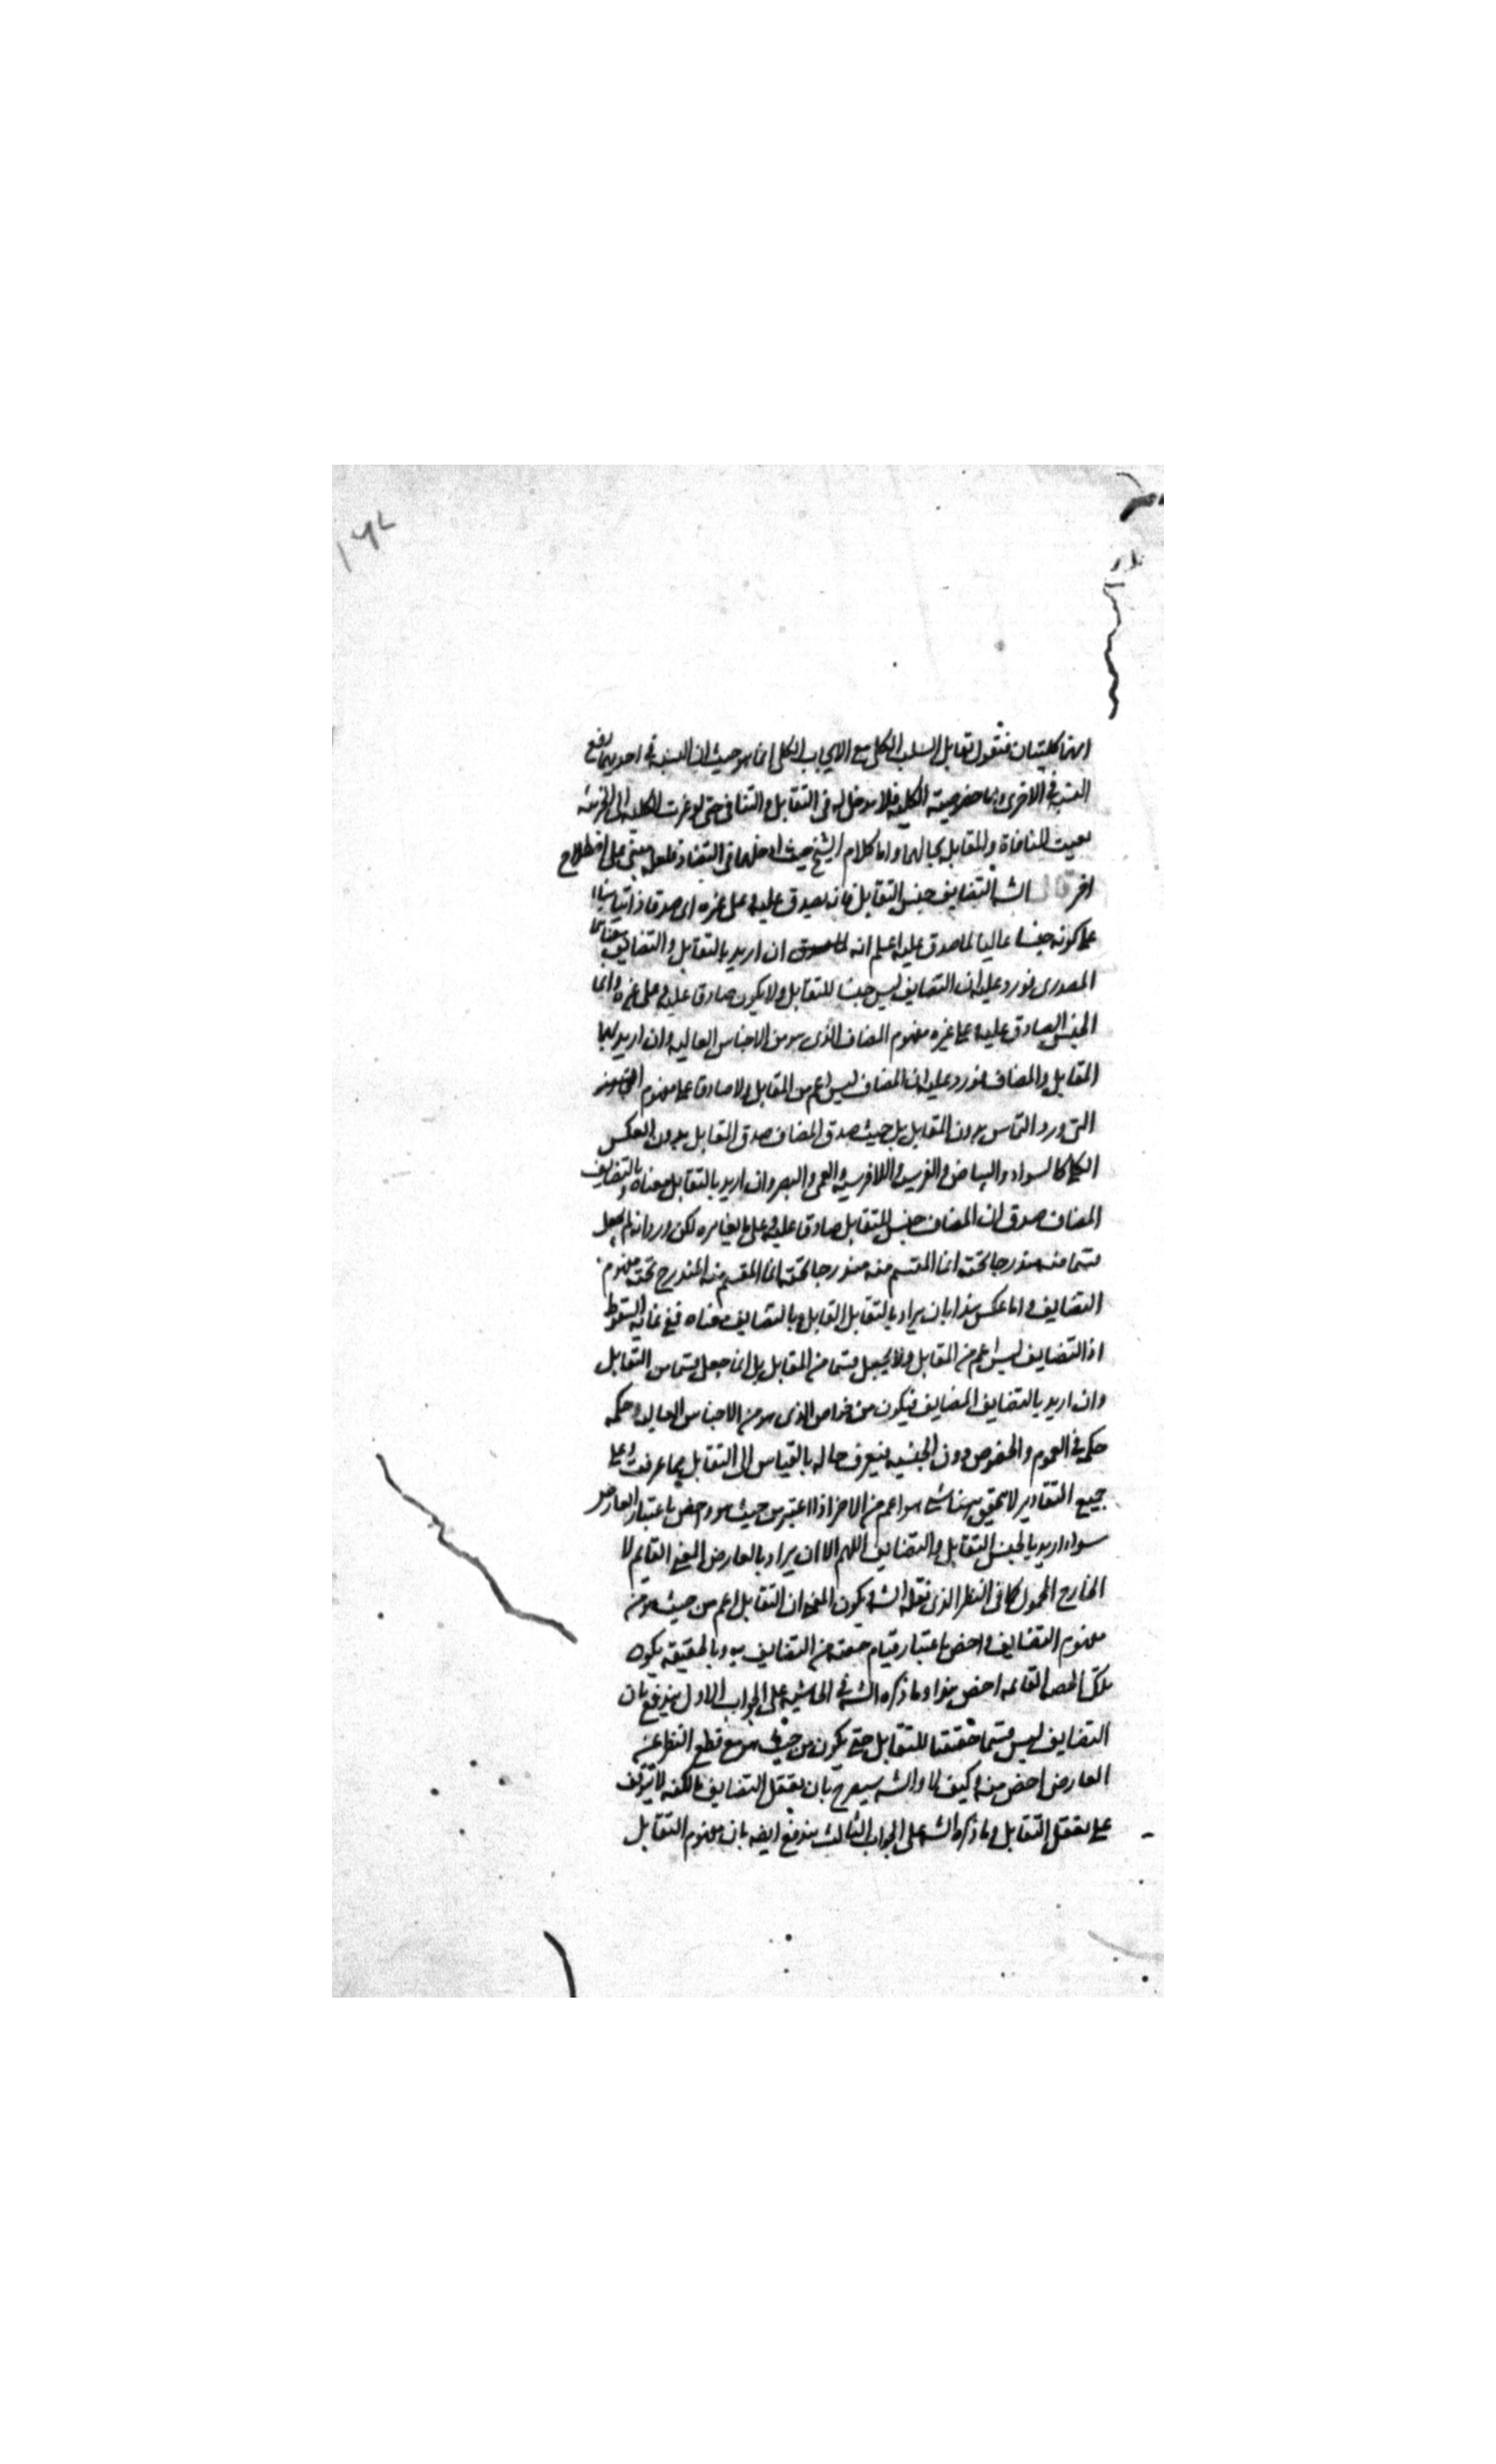 ۱۶۲
انهما كليتان فنقول تقابل السلب الكلي مع الايجاب الكلي انما هو حيث ان النسبة في احديهما رفع
النسبة في الاخرى واما خصوصية الكلية فلا مدخل له في التقابل والتنافي حتى لو غيرت الكلية الى الجزئية
بقيت المنافاة والمقابلة بحالهما واما كلام الشيخ حيث ادخلهما في التضاد فلعله مبني على اصطلاح
اخر قال الشه التضايف جنس التقابل فانه يصدق عليه وعلى غيره اى صدقا ذاتيا بناء
على كونه جنسا عاليا لما صدق عليه اعلم انه ان اريد بالتقابل والتضايف معناهما
المصدرى فورد عليه ان التضايف ليس جنسا للتقابل ولا يكون صادقا عليه وعلى غيره وانما
الجنس الصادق عليه وعلى غيره مفهوم المضاف الذى هو من الاجناس العالية وان اريد بهما
المقابل والمضاف فورد عليه ان المضاف ليس اعم من المقابل ولا صادقا على مفهوم
التى ورد التماس بدون المقابل بل حيث صدق المضاف صدق المقابل بدون العكس
الكلي كالسواد والبياض والفرسية واللافرسية والعمى والبصر وان اريد بالتقابل معناه وبالتضايف
المضاف صدق ان المضاف جنس للتقابل صادقا عليه وعلى ما يغايره لكن ورد انه لم يجعل
قسما منه مندرجا تحته انما المقسم منه مندرجا تحته انما المقسم منه المندرج تحته مفهوم
التضايف واما عكس هذا بان يراد بالتقابل القابل وبالتضايف معناه ففي غاية السقوط
اذ التضايف ليس اعم من المقابل ولا يجعل قسما من المقابل بل انما جعل قسما من التقابل
وان اريد بالتضايف المضايف فيكون من خواص الذى هو من الاجناس العالية وحكمه
حكمه في العموم والخصوص دون الجنسية فيعرف حاله بالقياس الى التقابل بما عرفت وعلى
جميع التقادير لا تحقق هنا شئ هو اعم من الاخر اذا اعتبر من حيث هو واخص باعتبار العارض
سواء اريد بالجنس التقابل والتضايف اللهم الا ان يراد بالعارض المعنى القايم لا
الخارج المحمول كما في النظر الذى نقله الشه ويكون المعنى ان التقابل اعم من حيث هو من
مفهوم التضايف واخص باعتبار قيام حصة من التضايف به وبالحقيقة يكون
تلك الحصة القائمة اخص هذا وما ذكره الشه في الحاشية على الجواب الاول يندفع بان
التضايف ليس قسما حقيقتا للتقابل حتى يكون من حيث هو مع قطع النظر عن
العارض اخص منه وكيف لا والشه سيصرح بان تعقل التضايف بالكنه لا يتوقف
على تعقل التقابل وما ذكره الشه على الجواب الثالث يندفع ايضه بان مفهوم التقابل